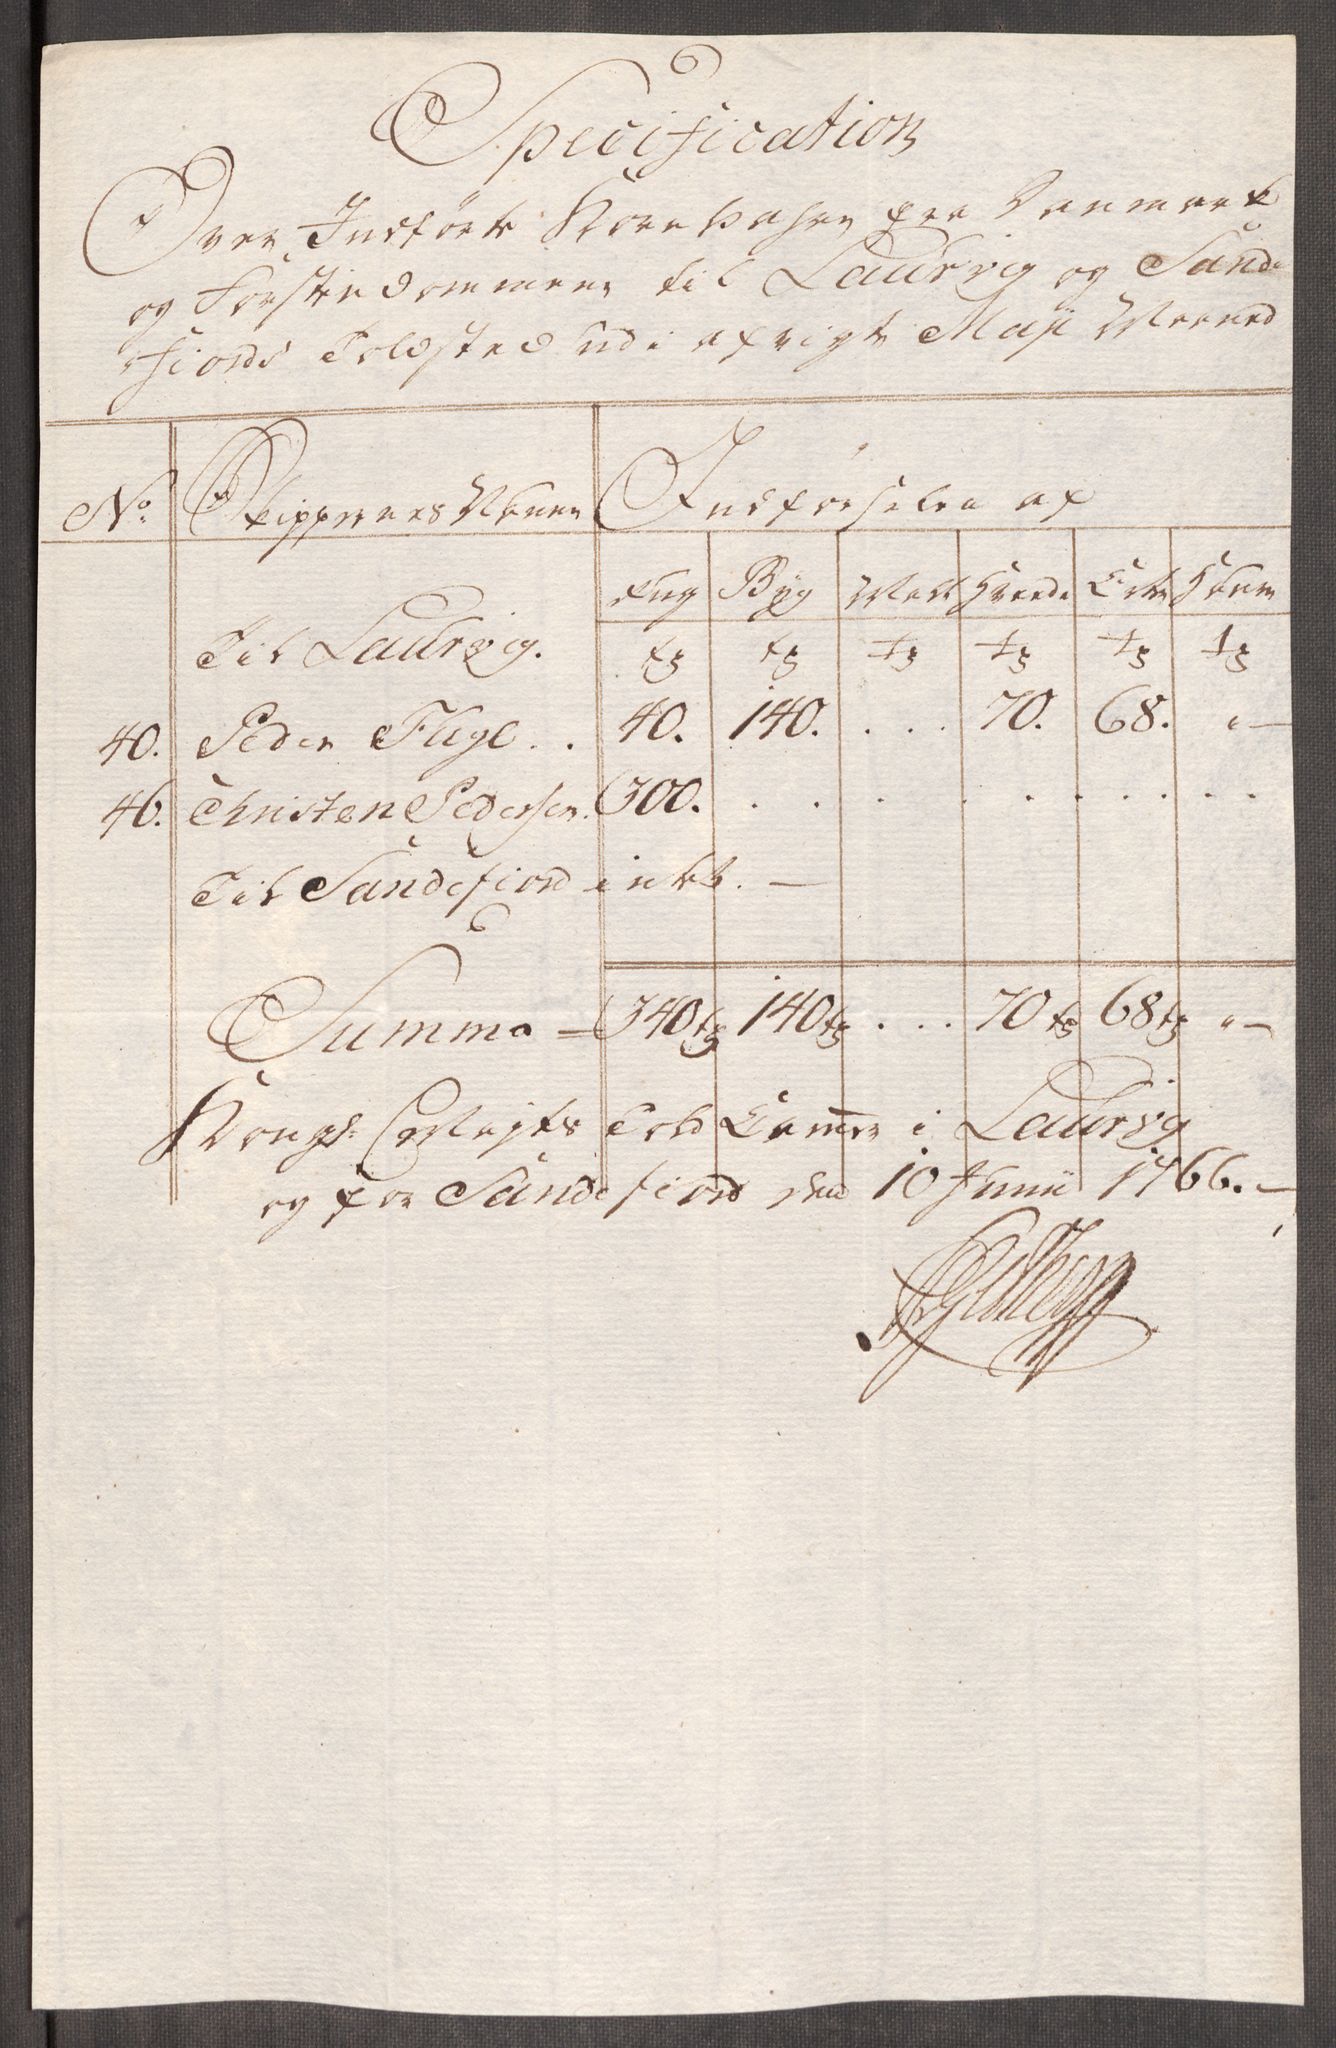 Specification
Over Indførte Korn Vahrer fra Danmark
og Førstedommene til Laurvig og Sande
fiords Toldsted udi afvigte Maji Maaned
No. Skippernes Nafne Indførselen af
Rug Byg Malt Hvede Erter Hafre
Til Laurvig. tr tr tr tr tr tr
40. Peder Fugl . . 40. 140. . . . 70. 68. " —
46. Christen Pedersen. 300. . . . . . . . . . .
Til Sandefiord intet. —
Summa = 340 tr 140 tr . . . 70 tr 68 tr " —
Kongl. Mayts Told Cammer i Laurvig
og for Sandefiord den 10 Junii 1766. —